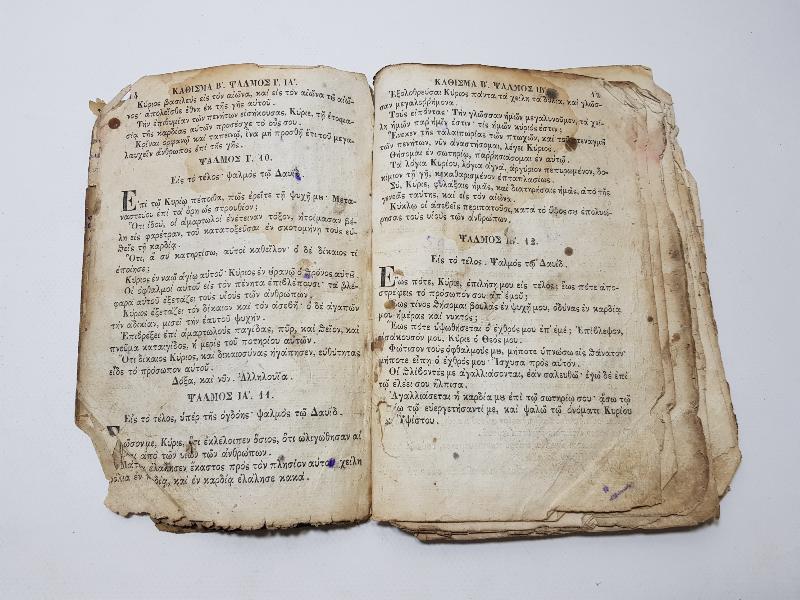 14
ΚΑΘΙΣΜΑ Β΄. ΨΑΛΜΟΣ Γ΄. ΙΑ΄.
Κύριος βασιλεὺς εἰς τὸν αἰῶνα, καὶ εἰς τὸν αἰῶνα τοῦ αἰῶ-
νος· ἀπολεῖσθε ἔθνη ἐκ τῆς γῆς αὐτοῦ.
Τὴν ἐπιθυμίαν τῶν πενήτων εἰσήκουσας, Κύριε, τῇ ἑτοιμα-
σίᾳ τῆς καρδίας αὐτῶν προσέσχε τὸ οὖς σου.
Κρῖναι ὀρφανῷ καὶ ταπεινῷ, ἵνα μὴ προσθῇ ἔτι τοῦ μεγα-
λαυχεῖν ἄνθρωπος ἐπὶ τῆς γῆς.
ΨΑΛΜΟΣ Γ΄. 10.
Εἰς τὸ τέλος· ψαλμὸς τῷ Δαυΐδ.
Ἐπὶ τῷ Κυρίῳ πέποιθα, πῶς ἐρεῖτε τῇ ψυχῇ μȣ· Μετα-
ναστεύου ἐπὶ τὰ ὄρη ὡς στρουθίον;
Ὅτι ἰδοὺ, οἱ ἁμαρτωλοὶ ἐνέτειναν τόξον, ἡτοίμασαν βέ-
λη εἰς φαρέτραν, τοῦ κατατοξεῦσαι ἐν σκοτομήνῃ τοὺς εὐ-
θεῖς τῇ καρδίᾳ.
Ὅτι, ἃ σὺ κατηρτίσω, αὐτοὶ καθεῖλον· ὁ δὲ δίκαιος τί
ἐποίησε;
Κύριος ἐν ναῷ ἁγίῳ αὐτοῦ· Κύριος ἐν ȣρανῷ ὁ θρόνος αὐτοῦ.
Οἱ ὀφθαλμοὶ αὐτοῦ εἰς τὸν πένητα ἐπιβλέπουσι· τὰ βλέ-
φαρα αὐτοῦ ἐξετάζει τοὺς υἱοὺς τῶν ἀνθρώπων.
Κύριος ἐξετάζει τὸν δίκαιον καὶ τὸν ἀσεβῆ· ὁ δὲ ἀγαπῶν
τὴν ἀδικίαν, μισεῖ τὴν ἑαυτοῦ ψυχήν.
Ἐπιβρέξει ἐπὶ ἁμαρτωλοὺς παγίδας, πῦρ, καὶ θεῖον, καὶ
πνεῦμα καταιγίδος, ἡ μερὶς τοῦ ποτηρίου αὐτῶν.
Ὅτι δίκαιος Κύριος, καὶ δικαιοσύνας ἠγάπησεν, εὐθύτητας
εἶδε τὸ πρόσωπον αὐτοῦ.
Δόξα, καὶ νῦν. Ἀλληλούϊα.
ΨΑΛΜΟΣ ΙΑ΄. 11.
Εἰς τὸ τέλος, ὑπὲρ τῆς ὀγδόης· ψαλμὸς τῷ Δαυΐδ.
Σῶσόν με, Κύριε, ὅτι ἐκλέλοιπεν ὅσιος, ὅτι ὠλιγώθησαν αἱ
ἀπὸ τῶν υἱῶν τῶν ἀνθρώπων.
Μάταια ἐλάλησεν ἕκαστος πρὸς τὸν πλησίον αὐτοῦ, χείλη
δόλια ἐν καρδίᾳ, καὶ ἐν καρδίᾳ ἐλάλησε κακά.
ΚΑΘΙΣΜΑ Β΄. ΨΑΛΜΟΣ ΙΒ
Ἐξολοθρεύσαι Κύριος πάντα τὰ χείλη τὰ δόλια, καὶ γλῶσ-
σαν μεγαλοῤῥήμονα.
Τοὺς εἰπόντας· Τὴν γλῶσσαν ἡμῶν μεγαλυνοῦμεν, τὰ χεί-
λη ἡμῶν παρ᾽ ἡμῖν ἐστιν· τίς ἡμῶν κύριός ἐστιν;
Ἕνεκεν τῆς ταλαιπωρίας τῶν πτωχῶν, καὶ τοῦ στεναγμοῦ
τῶν πενήτων, νῦν ἀναστήσομαι, λέγει Κύριος.
Θήσομαι ἐν σωτηρίῳ, παῤῥησιάσομαι ἐν αὐτῷ.
Τὰ λόγια Κυρίου, λόγια ἁγνὰ, ἀργύριον πεπυρωμένον, δο-
κίμιον τῇ γῇ, κεκαθαρισμένον ἑπταπλασίως.
Σὺ, Κύριε, φυλάξαις ἡμᾶς, καὶ διατηρήσαις ἡμᾶς, ἀπὸ τῆς
γενεᾶς ταύτης, καὶ εἰς τὸν αἰῶνα.
Κύκλῳ οἱ ἀσεβεῖς περιπατοῦσι, κατὰ τὸ ὕψος σου ἐπολυώ-
ρησας τοὺς υἱοὺς τῶν ἀνθρώπων.
ΨΑΛΜΟΣ ΙΒ΄. 12.
Εἰς τὸ τέλος. Ψαλμὸς τῷ Δαυΐδ.
Ἕως πότε, Κύριε, ἐπιλήσῃ μου εἰς τέλος; ἕως πότε ἀπο-
στρέψεις τὸ πρόσωπόν σου ἀπ᾽ ἐμοῦ;
Ἕως τίνος θήσομαι βουλὰς ἐν ψυχῇ μου, ὀδύνας ἐν καρδίᾳ
μου ἡμέρας καὶ νυκτός;
Ἕως πότε ὑψωθήσεται ὁ ἐχθρός μου ἐπ᾽ ἐμέ; Ἐπίβλεψον,
εἰσάκουσόν μου, Κύριε ὁ Θεός μου.
Φώτισον τοὺς ὀφθαλμούς μȣ, μήποτε ὑπνώσω εἰς θάνατον·
μήποτε εἴπῃ ὁ ἐχθρός μου· Ἴσχυσα πρὸς αὐτόν.
Οἱ θλίβοντές με ἀγαλλιάσονται, ἐὰν σαλευθῶ· ἐγὼ δὲ ἐπὶ
τῷ ἐλέει σου ἤλπισα.
Ἀγαλλιάσεται ἡ καρδία μȣ ἐπὶ τῷ σωτηρίῳ σου· ᾄσω τῷ
Κυρίῳ τῷ εὐεργετήσαντί με, καὶ ψαλῶ τῷ ὀνόματι Κυρίου
τοῦ Ὑψίστου.